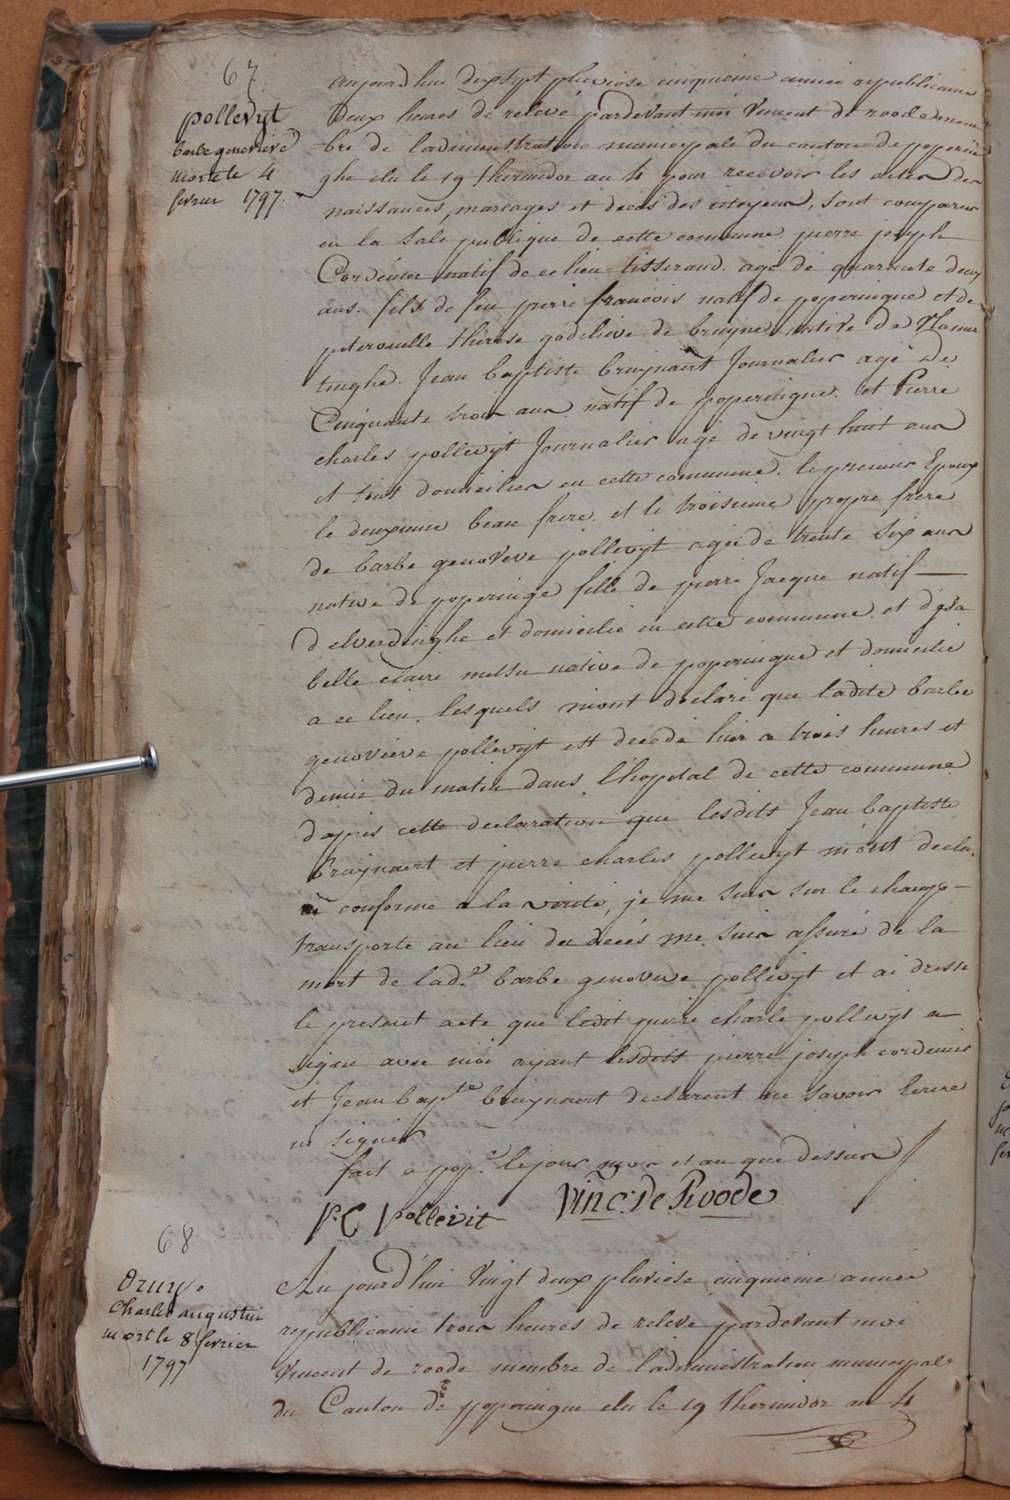 67
pollevyt
barbe genevieve
morte le 4
fevrier 1797.
aujourdhui dixsept pluviose cinquieme année republicaine
deux heures de relevé pardevant moi Vincent de roode mem
bre de ladministration municipale du canton de poperin
ghe elu le 19 thermidor an 4 pour recevoir les actes des
naissances, mariages et decès des citoyens, sont comparus
en la sale publique de cette commune pierre joseph
Cordenier natif de ce lieu tisserand agé de quarante deux
ans fils de feu pierre francois natif de poperingue et de
peterouille thérese godelieve de bruyne native de Vlamer
tinghe. Jean baptiste bruynaert Journalier agé de
Cinquante trois ans natif de poperingue. et Pierre
charles pollevyt Journalier agé de vingt huit ans
et tous domiciliés en cette commune. le premier Epoux
le deuxieme beau frere. et le troisieme propre frere
de barbe genoveve pollevyt agée de trente six ans
native de poperinge fille de pierre Jacque natif
d'elverdinghe et domicilié en cette commune et d'ysa
belle claire native de poperingue et domicilié
a ce lieu, lesquels m'ont déclaré que ladite barbe
genovieve pollevyt est decedé hier a trois heures et
demie du matin dans l'hopital de cette commune
d'après cette declaration que lesdits Jean baptiste
bruynaert et pierre charles pollevyt m'ont decla
ré conforme a la verité, je me suis sur le champ
transporté au lieu du decès me suis assuré de la
mort de lad.e barbe genoveve pollevyt et ai dressé
le present acte que ledit pierre charle pollevyt a
signé avec moi ayant lesdits pierre joseph cordenier
et Jean bapte bruynaert declarent ne savoir ecrire
ni signer
fait a pop.e le jour mois et an que dessus
P. C pollevit Vinc: De Roode
68
Charle augustin
mort le 8 fevrier
1797
Au jourd'hui Vingt deux pluviose cinquieme année
republicaine trois heures de relevé pardevant moi
Vincent de roode membre de l'administration municipale
du Canton de poperingue elu le 19 thermidor an 4